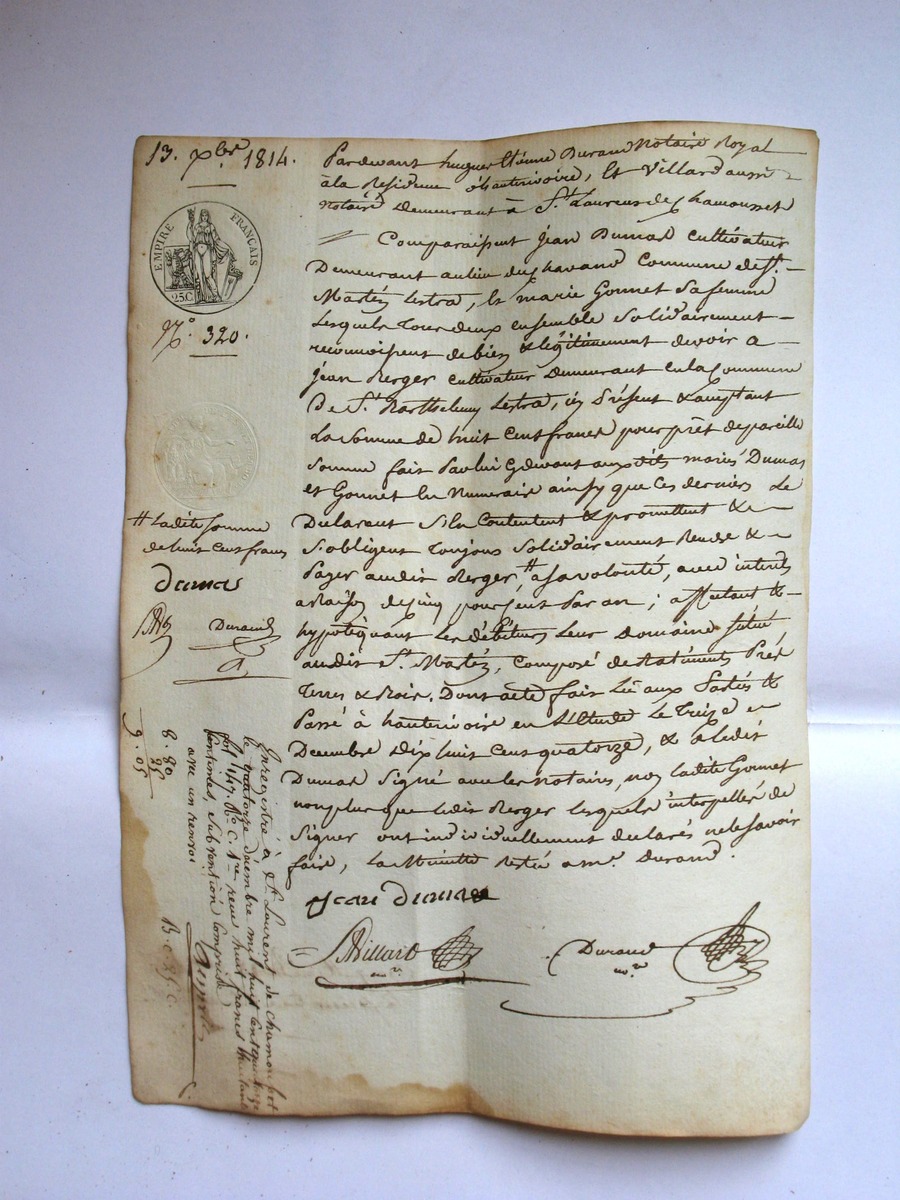 13. Xbre 1814.
EMPIRE FRANÇAIS
25.C
N.o 320.
Pardevant hugues Etienne Durand Notaire Royal
àla Residence d'hauterivoire, Et Villard aussi
Notaire Demeurant à St. Laurens de Chamousset
Comparaissent Jean Dumas Cultivateur
Demeurant aulieu du Chavand Commune de St.
Martin Lestra, & marie Gonnet Sa femme
Lesquels Tous deux ensemble Solidairement
reconnoissent de bien & légitimement devoir a
Jean Berger Cultivateur Demeurant en la Commune
De St. Barthelemy Lestra, ici Présent & acceptant
La Somme de huit Cent francs pour prêt de pareille
Somme fait Par lui Cydevant aux dits mariés Dumas
et Gonnet En Numeraire ainsy que Ces derniers Le
Declarent S'En Contentent & promettent &
S'obligent Toujours Solidairement Rendre &
Payer audit Berger, # à Sa volonté, avec intérêts
a Raison de Cinq pour Cent Par an ; affectant &
hypotéquant Les débiteurs Leur Domaine Situé
audit St. Martin, Composé de Batiments Prés
Terres & Bois. Dont acte fait Lu aux Parties &
Passé à hauterivoire en L'Etude Le Treize
Decembre Dix huit Cent quatorze, & a Ledit
Dumas Signé avec les Notaires, non Ladite Gonnet
non plus que Ledit Berger Lesquels interpellés de
Signer ont individuellement declarés ne le Savoir
faire, La Minute restée a me. Durand.
Jean Dumas
Villard
nre.
Durand
nre
# Ladite Somme
de huit Cent francs
Dumas
Durand
Enregistré à St. Laurent de Chamousset
le quatorze decembre mil huit Cent quatorze
fol. 147. Ro. C. 1re. reçu huit francs quatre vingt
Centimes, Subvention Comprise
avec un renvoi
8. 80
25
9. 05